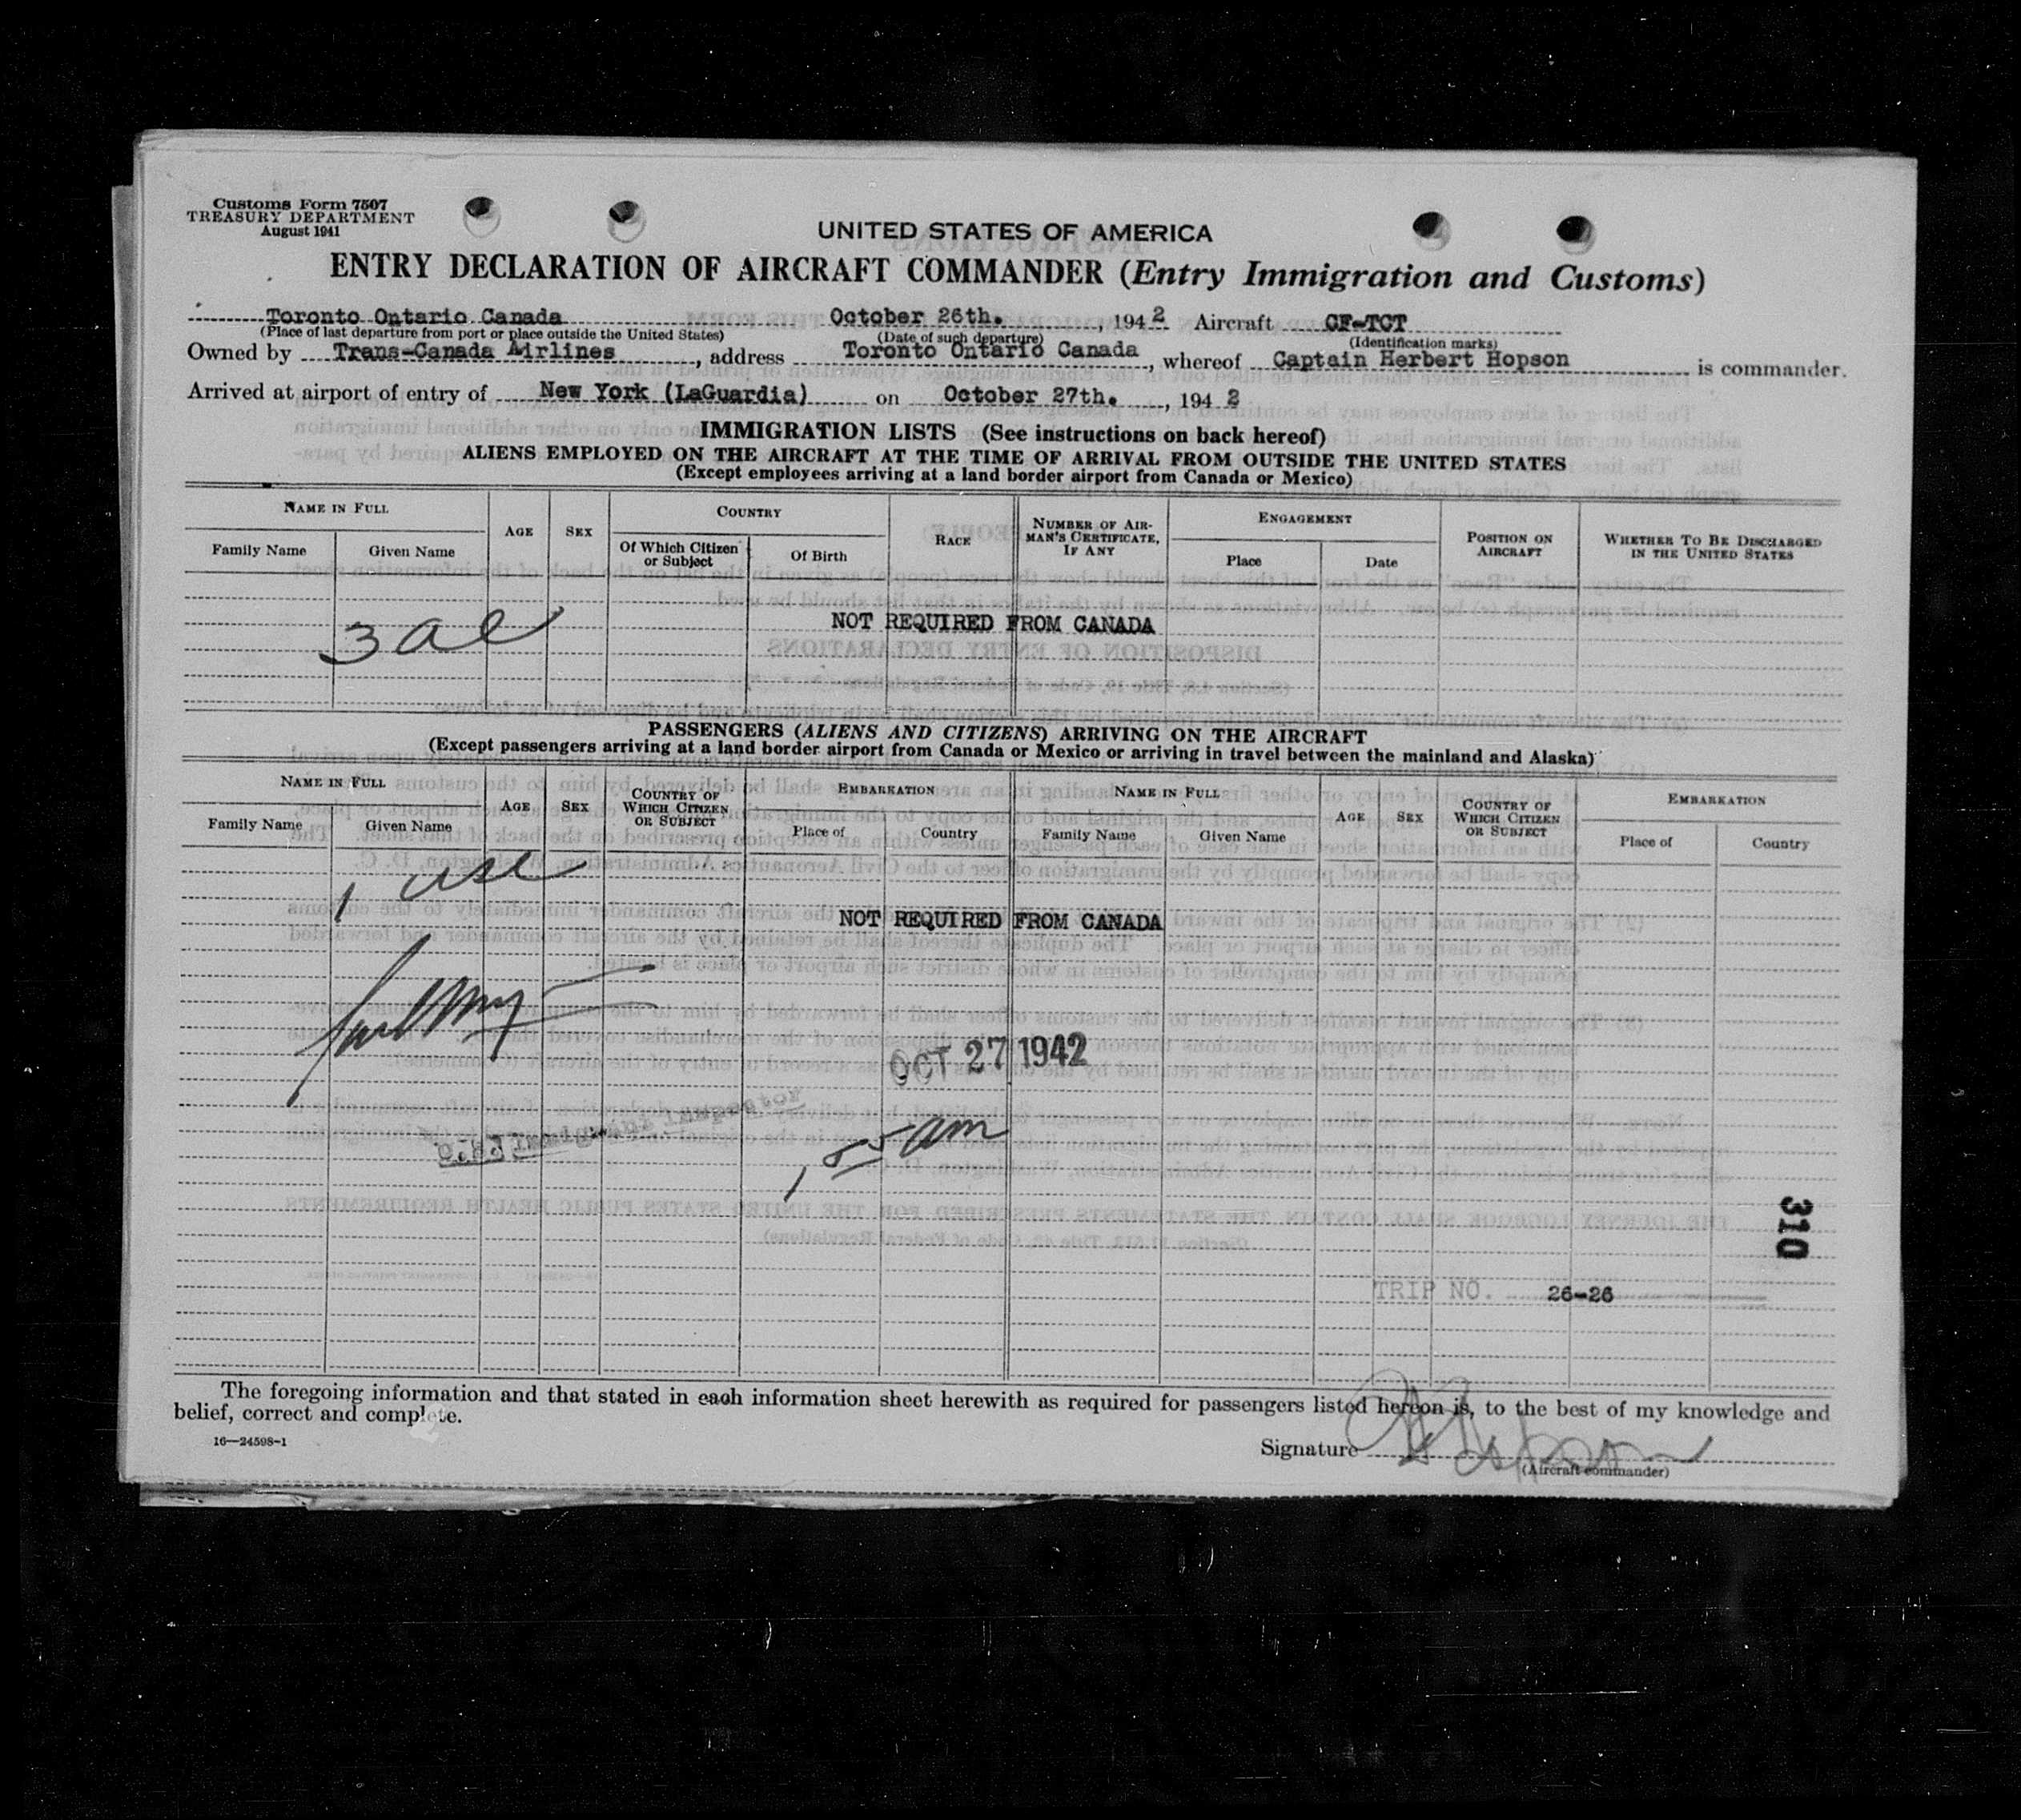 Customs Form 7507
TREASURY DEPARTMENT
August 1941
UNITED STATES OF AMERICA
ENTRY DECLARATION OF AIRCRAFT COMMANDER (Entry Immigration and Customs)
Toronto Ontario Canada October 26th. , 1942 Aircraft CF-TCT
(Place of last departure from port or place outside the United States) (Date of such departure) (Identification marks)
Owned by Trans-Canada Airlines , address Toronto Ontario Canada , whereof Captain Herbert Hopson is commander.
Arrived at airport of entry of New York (LaGuardia) on October 27th. , 1942
IMMIGRATION LISTS (See instructions on back hereof)
ALIENS EMPLOYED ON THE AIRCRAFT AT THE TIME OF ARRIVAL FROM OUTSIDE THE UNITED STATES
(Except employees arriving at a land border airport from Canada or Mexico)
NAME IN FULL AGE SEX COUNTRY RACE NUMBER OF AIRMAN'S CERTIFICATE, IF ANY ENGAGEMENT POSITION ON AIRCRAFT WHETHER TO BE DISCHARGED IN THE UNITED STATES
Family Name Given Name Of Which Citizen or Subject Of Birth Place Date
NOT REQUIRED FROM CANADA
PASSENGERS (ALIENS AND CITIZENS) ARRIVING ON THE AIRCRAFT
(Except passengers arriving at a land border airport from Canada or Mexico or arriving in travel between the mainland and Alaska)
NAME IN FULL AGE SEX COUNTRY OF WHICH CITIZEN OR SUBJECT EMBARKATION NAME IN FULL AGE SEX COUNTRY OF WHICH CITIZEN OR SUBJECT EMBARKATION
Family Name Given Name Place of Country Family Name Given Name Place of Country
NOT REQUIRED FROM CANADA
OCT 27 1942
U.S. Immigrant Inspector
1,55 am
310
TRIP NO. 26-26
The foregoing information and that stated in each information sheet herewith as required for passengers listed hereon is, to the best of my knowledge and
belief, correct and complete.
16—24598-1
Signature
(Aircraft commander)